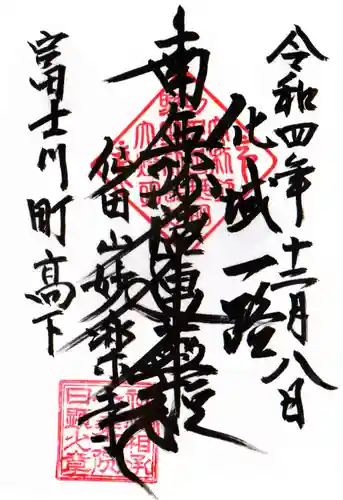 令和四年十二月八日
化城一路
南無妙法蓮華経
信田山妙楽寺
富士川町高下